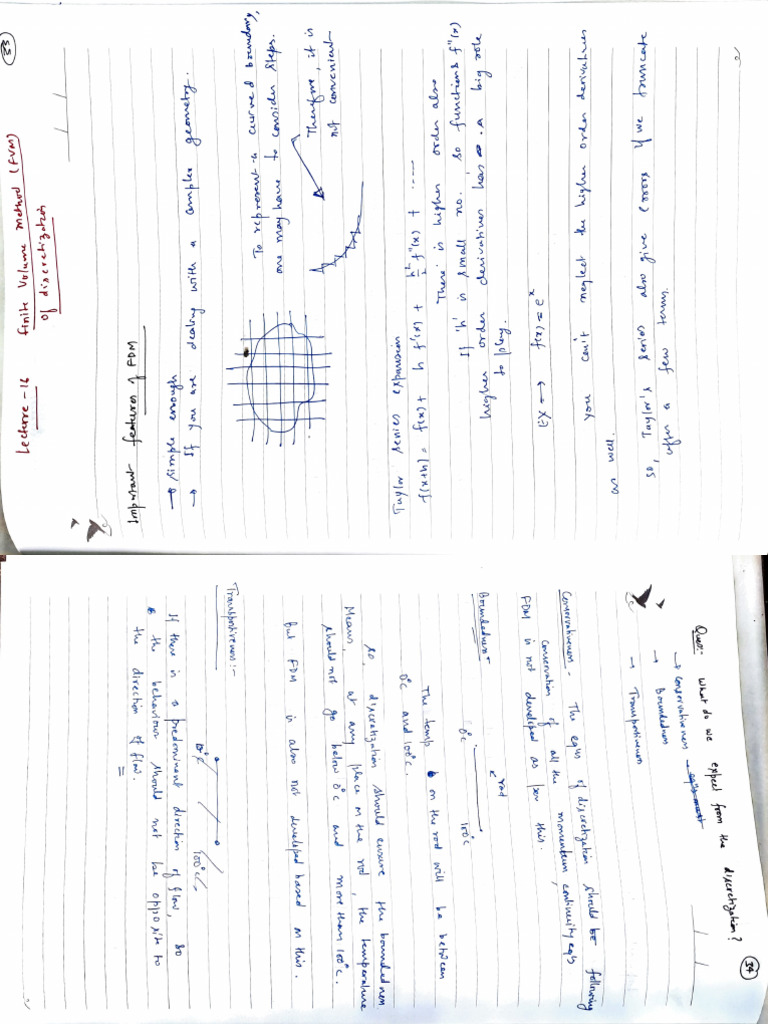 33
Lecture - 16 Finite Volume Method (FVM)
of discretization
Important features of FDM
→ Simple enough
→ If you are dealing with a complex geometry.
To represent a curved boundary,
one may have to consider steps.
Therefore, it is
not convenient
Taylor series expansion
f(x+h) = f(x) + h f'(x) + h²/2 f''(x) + ....
There is higher order also
If 'h' is small no. so functions f''(x)
higher order derivatives has a big role
to play.
EX → f(x) = e^x
You can't neglect the higher order derivatives
as well.
So, Taylor's series also give errors if we truncate
after a few terms.
34
Ques:- What do we expect from the discretization?
→ Conservativeness
→ Boundedness
→ Transportiveness
Conservativeness - The eqns of discretization should be following
conservation of all the momentum, continuity eqns
FDM is not developed as per this.
Boundedness -
rod
0°c 100°c
The temp on the rod will be between
0°c and 100°c.
So, discretization should ensure the boundedness.
Means, at any place on the rod, the temperature
should not go below 0°c and more than 100°c.
But FDM is also not developed based on this.
Transportiveness:-
100°c
If there is a predominent direction of flow, so
the behaviour should not be opposite to
the direction of flow.